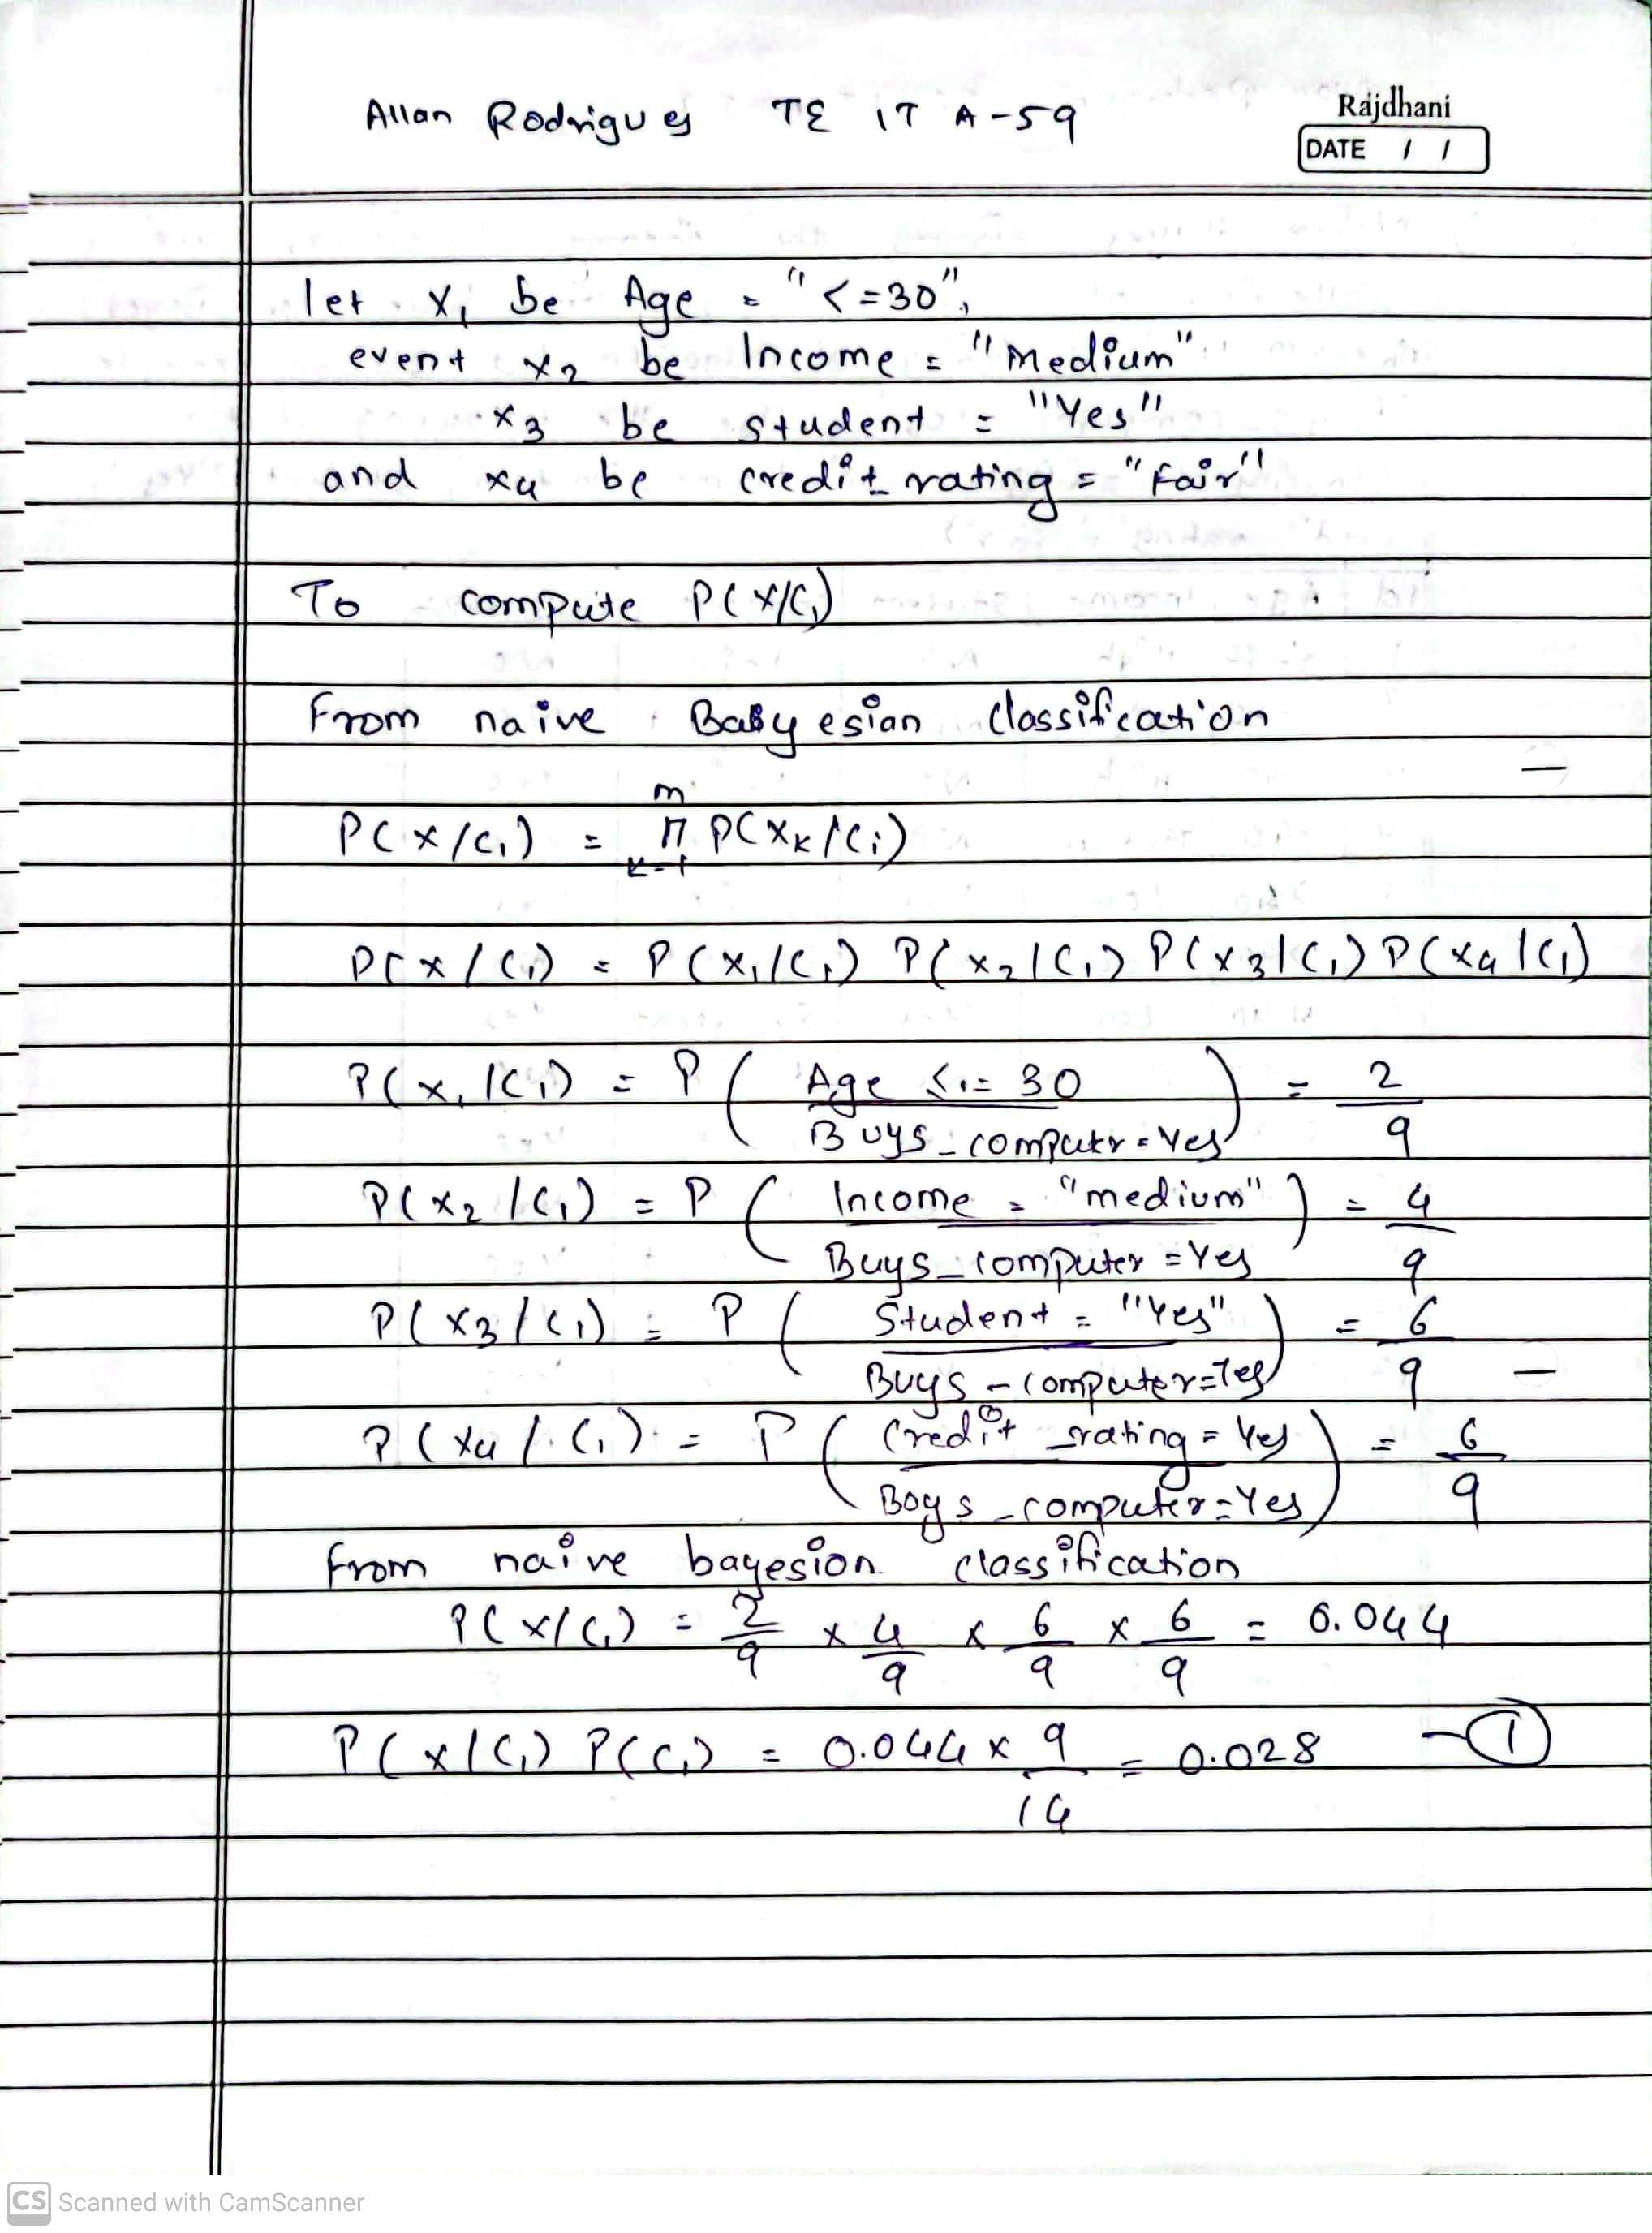 Allan Rodrigues TE IT A-59
Rajdhani
DATE / /
let x₁ be Age = "<=30",
event x₂ be Income = "Medium"
x₃ be student = "Yes"
and x₄ be credit_rating = "Fair"
To compute P(X/C₁)
From naive Bayesian classification
m
P(x/C₁) = π P(xₖ/Cᵢ)
k=1
P(x/C₁) = P(x₁/C₁) P(x₂/C₁) P(x₃/C₁) P(x₄/C₁)
P(x₁/C₁) = P ( Age <= 30 ) = 2
Buys_computer=Yes 9
P(x₂/C₁) = P ( Income = "medium" ) = 4
Buys_computer =Yes 9
P(x₃/C₁) = P ( Student = "Yes" ) = 6
Buys_computer=Yes 9
P(x₄/C₁) = P ( Credit_rating = Yes ) = 6
Boys_computer=Yes 9
from naive bayesion classification
P(x/C₁) = 2/9 x 4/9 x 6/9 x 6/9 = 0.044
P(x/C₁) P(C₁) = 0.044 x 9/14 = 0.028 - ①
CS Scanned with CamScanner